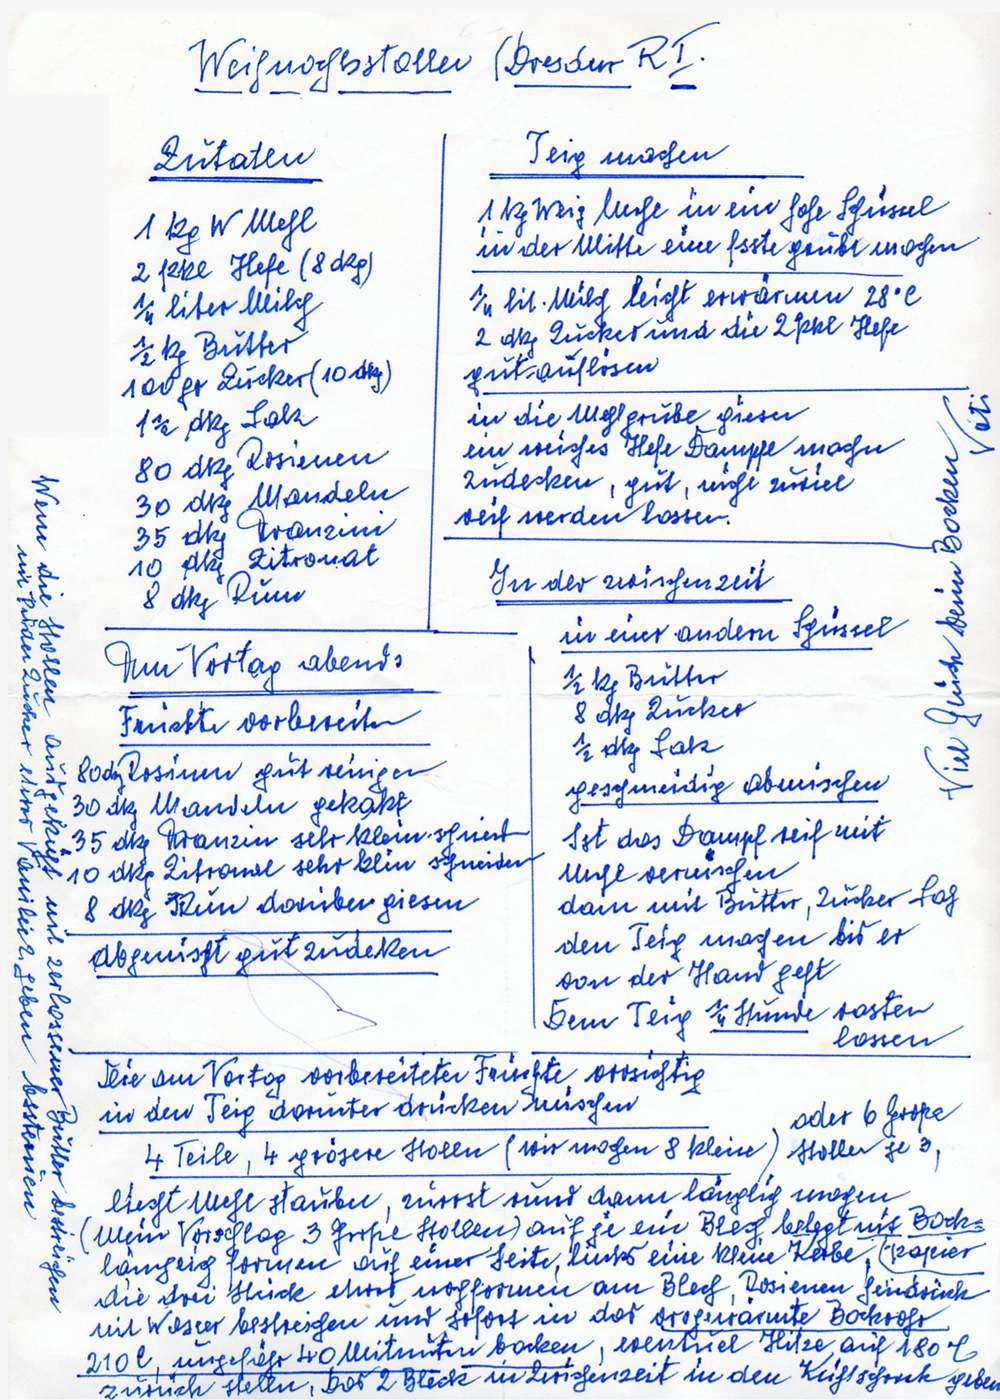 Weihnachsstollen (Dresdner R I.
Zutaten
1 kg W Mehl
2 pkl Hefe (8 dkg)
1/4 liter Milch
1/2 kg Butter
100 gr Zucker (10 dkg)
1 1/2 dkg Salz
80 dkg Rosienen
30 dkg Mandeln
35 dkg Aranzini
10 dkg Zitronat
8 dkg Rum
Teig machen
1 kg Weiz Mehl in ein hohe Schüssel
in der Mitte eine feste grube machen
1/4 lit. Milch leicht erwärmen 28°C
2 dkg Zucker und die 2 pkl Hefe
gut auflösen
in die Mehlgrube giesen
ein weiches Hefe Dampfl machn
zudecken, gut, nicht zuviel
reif werden lassen.
In der zwischenzeit
in einer andern Schüssel
1/2 kg Butter
8 dkg Zucker
1/2 dkg Salz
geschmeidig abmischen
Ist das Dampfl reif mit
Mehl vermischen
dann mit Butter, Zucker Salz
den Teig machen bis er
von der Hand geht
Dem Teig 1/4 Stunde rasten
lassen
Am Vortag abends
Früchte vorbereiten
80 dkg Rosinen gut reinigen
30 dkg Mandeln gehakt
35 dkg Aranzin sehr klein schneid
10 dkg Zitronat sehr klein schneiden
8 dkg Rum darüber giesen
abgemischt gut zudeken
Die am Vortag vorbereiteten Früchte vorsichtig
in den Teig darunter drücken mischen
4 Teile, 4 grösere Stollen (wir machen 8 kleine)
oder 6 Große
Stollen je 3,
leicht Mehl stauben, zuerst rund dann länglich machen
(Mein Vorschlag 3 Große Stollen) auf je ein Blech belegt mit Back-
papier
länglich formen auf einer Seite, links eine kleine Kerbe,
die drei Stück etwas nachformen am Blech, Rosienen hineindrück
mit Wasser bestreichen und sofort in das vorgewärmte Backrohr
210 C, ungefähr 40 Minuten backen, eventuel Hitze auf 180°C
zurück stellen, Das 2 Blech in Zwischenzeit in den Kühlschrank geben
Wenn die Stollen ausgekühlt mit zerlassener Butter bestreichen
mit Puder Zucker etwas Vanile Z. geben bestreuen
Viel Glück beim Backen
Vati